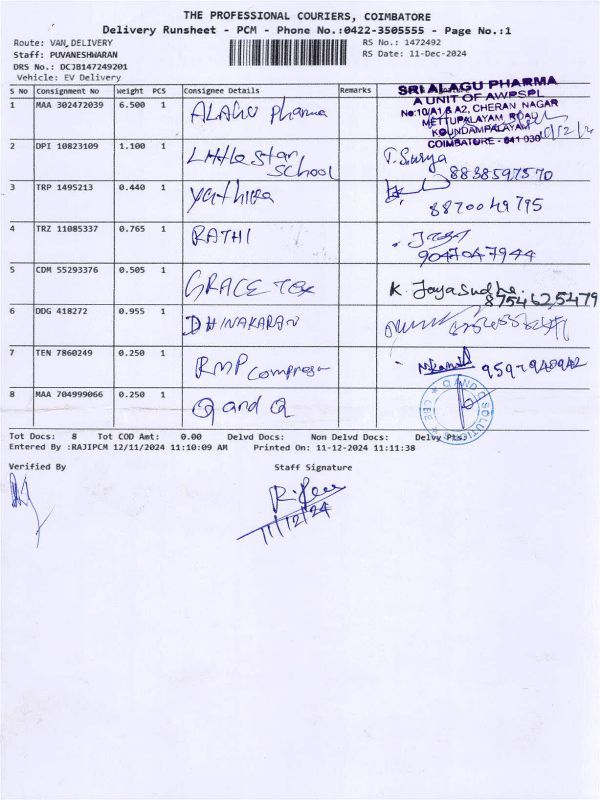 THE PROFESSIONAL COURIERS, COIMBATORE
Delivery Runsheet - PCM - Phone No.:0422-3505555 - Page No.:1
Route: VAN DELIVERY
Staff: PUVANESHWARAN
DRS No.: DCJB147249201
Vehicle: EV Delivery
RS No.: 1472492
RS Date: 11-Dec-2024
S No Consignment No Weight PCS Consignee Details Remarks
SRI ALAGU PHARMA
A UNIT OF AWPSPL
No:10/A1 & A2, CHERAN NAGAR
METTUPALAYAM ROAD
KOUNDAMPALAYAM
COIMBATORE - 641 030
1 MAA 302472039 6.500 1 ALAGU pharma
2 DPI 10823109 1.100 1 Little star school T. Surya 8838597570
3 TRP 1495213 0.440 1 yathira 8870049795
4 TRZ 11085337 0.765 1 RATHI 9047047944
5 CDM 55293376 0.505 1 GRACE Tex K. Jayasudha. 8754625479
6 DDG 418272 0.955 1 DHINAKARAN
7 TEN 7860249 0.250 1 RMP compress
8 MAA 704999066 0.250 1 Q and Q
Tot Docs: 8 Tot COD Amt: 0.00 Delvd Docs: Non Delvd Docs: Delvy Pts:
Entered By :RAJIPCM 12/11/2024 11:10:09 AM Printed On: 11-12-2024 11:11:38
Verified By Staff Signature
11/12/24